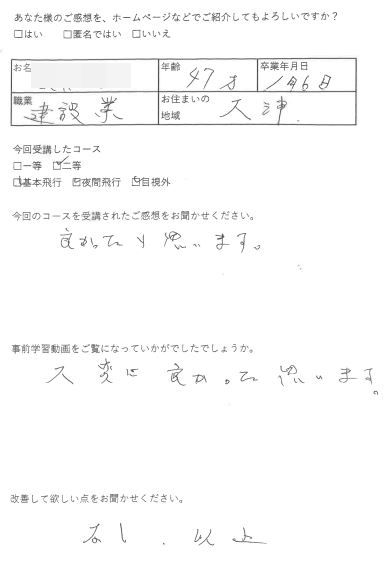 あなた様のご感想を、ホームページなどでご紹介してもよろしいですか？
□はい □匿名ではい □いいえ
お名 年齢 47才 卒業年月日 1月6日
職業 建設業 お住まいの地域 大津.
今回受講したコース
□一等 ☑二等
☑基本飛行 ☑夜間飛行 ☑目視外
今回のコースを受講されたご感想をお聞かせください。
良かったと思います。
事前学習動画をご覧になっていかがでしたでしょうか。
大変に良かった思います。
改善して欲しい点をお聞かせください。
なし. 以上